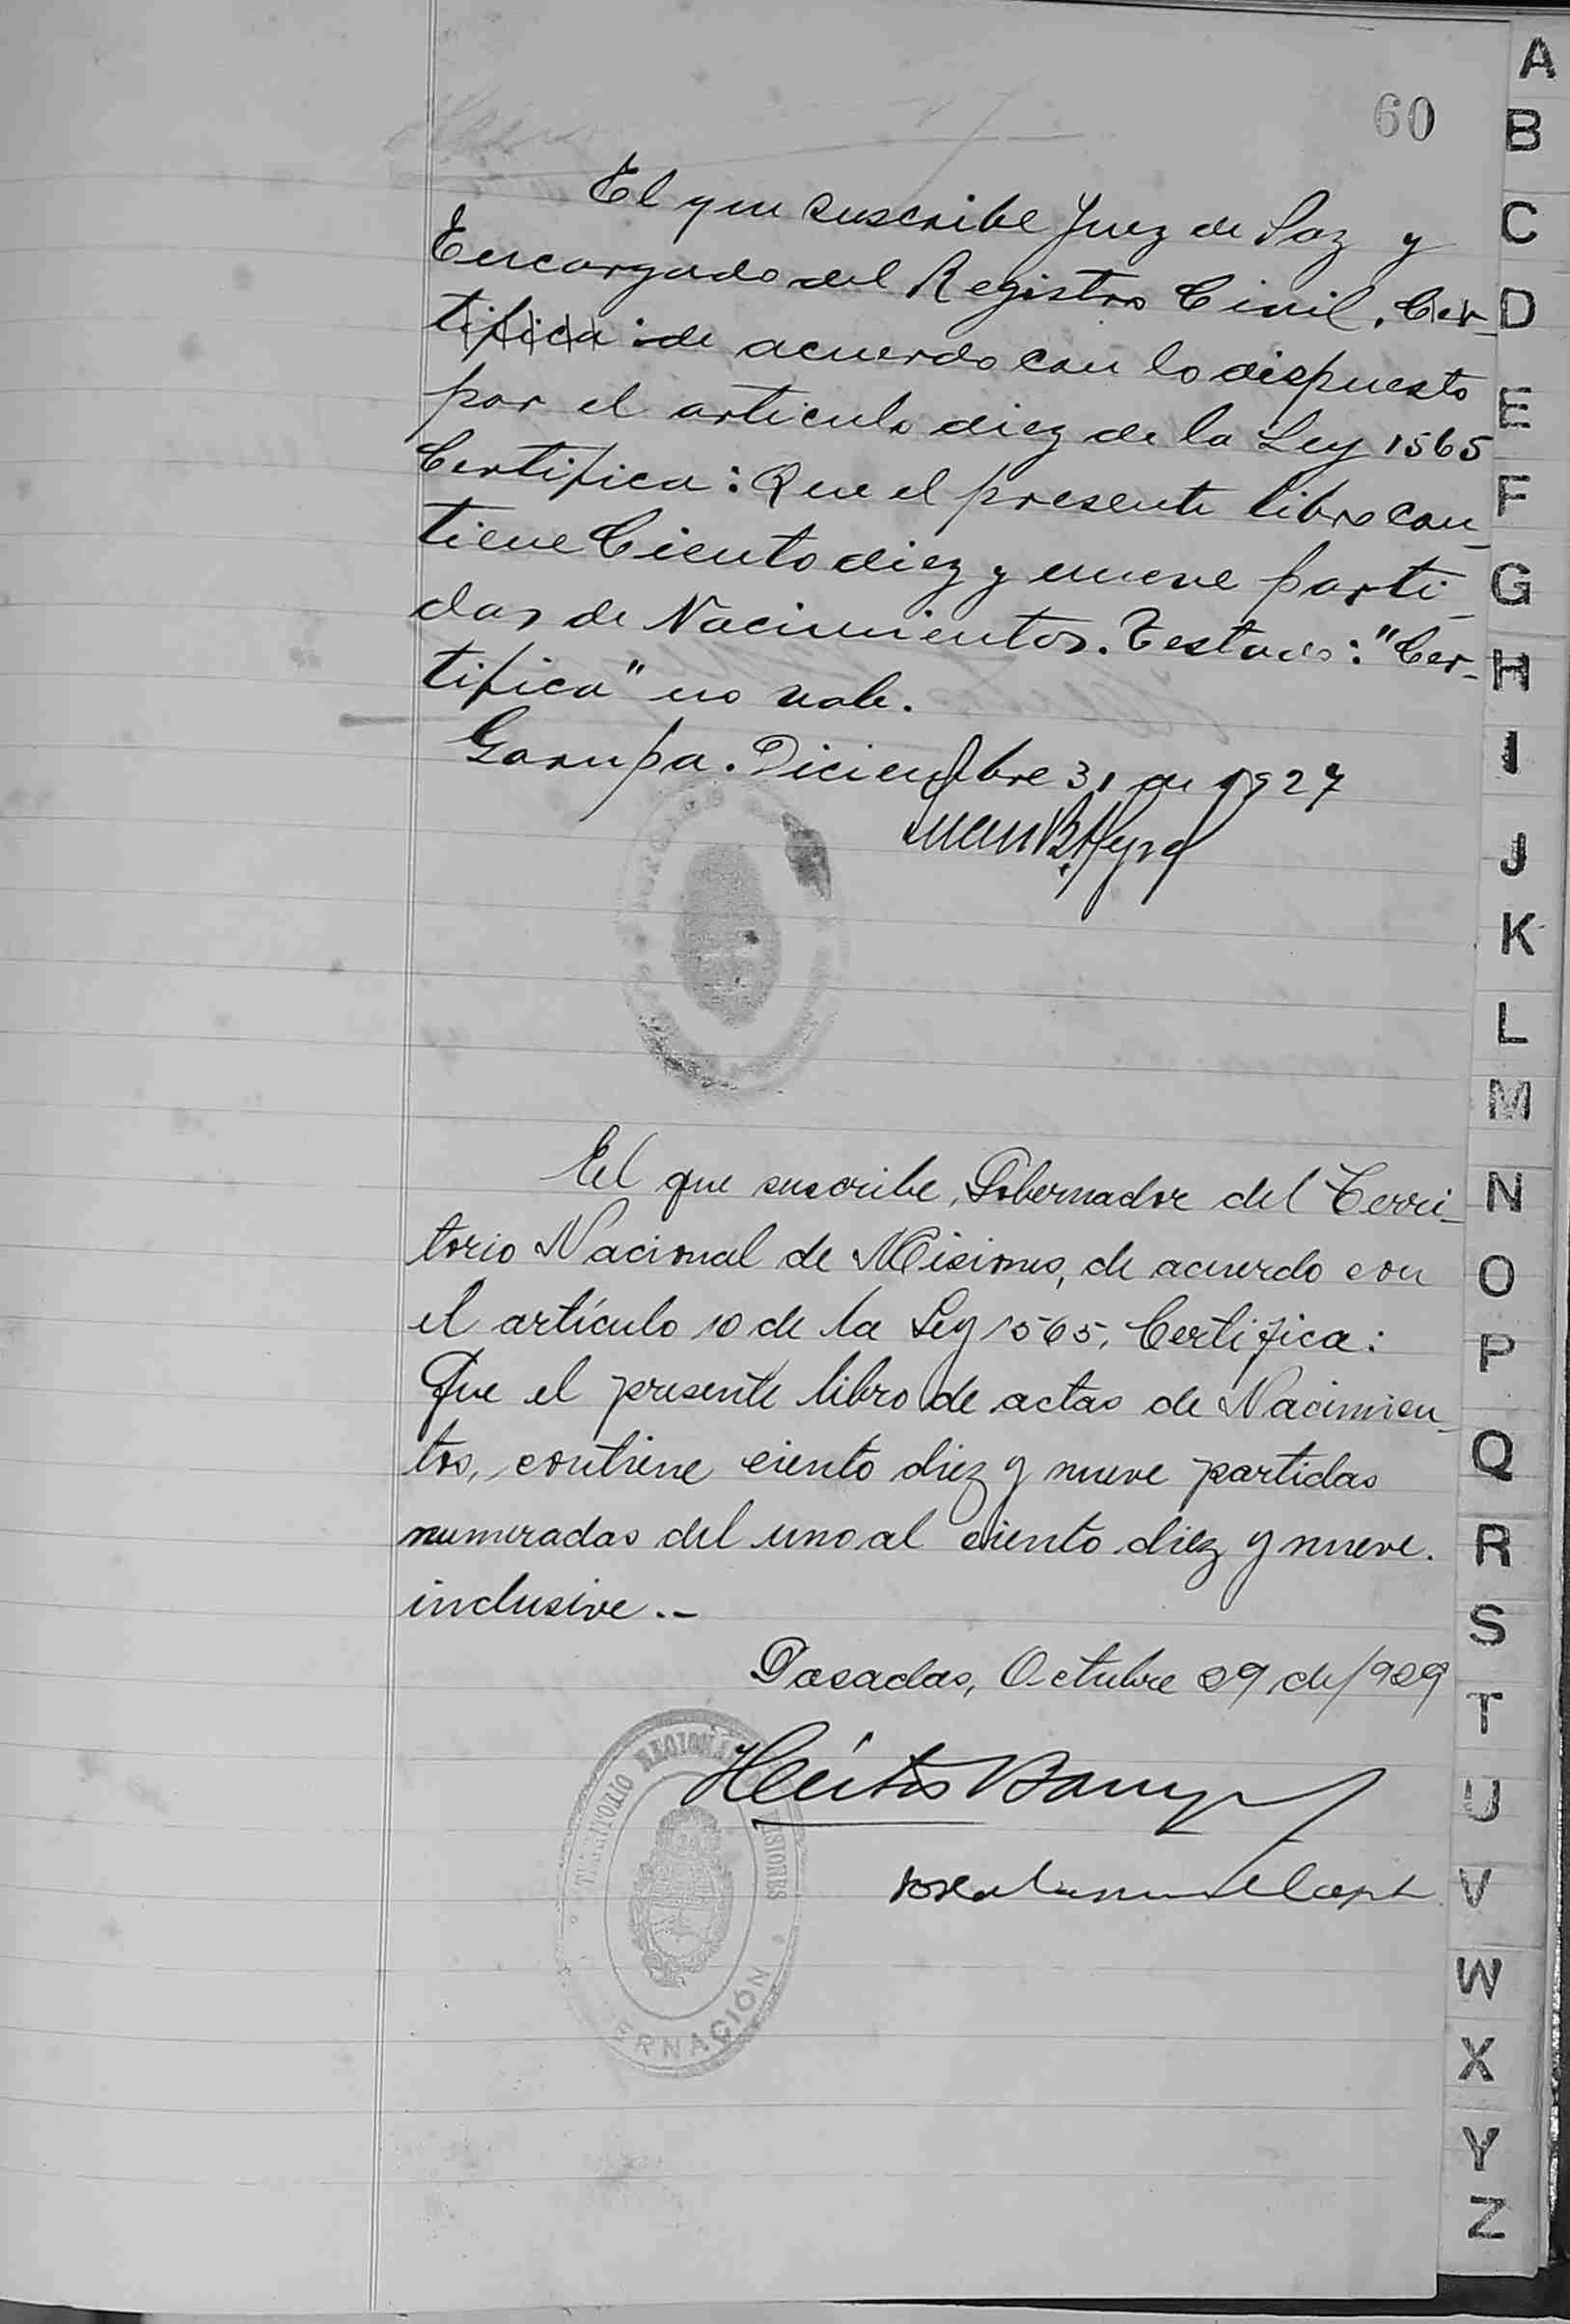 60
El que suscribe Juez de Paz y
Encargado del Registro Civil. Cer-
tifica: de acuerdo con lo dispuesto
por el articulo diez de la Ley 1565
Certifica: Que el presente libro con-
tiene Ciento diez y nueve parti-
das de Nacimientos. Testado: "Cer-
tifica" no vale.
Garupa. Diciembre 31 de 1927
Juan B.
El que suscribe, Gobernador del Terri-
torio Nacional de Misiones, de acuerdo con
el artículo 10 de la Ley 1565, Certifica:
Que el presente libro de actas de Nacimien-
tos, contiene ciento diez y nueve partidas
numeradas del uno al ciento diez y nueve.
inclusive.-
Posadas, Octubre 29 de 1929
Héctor
TERRITORIO NACIONAL MISIONES
ERNACIÓN
A
B
C
D
E
F
G
H
I
J
K
L
M
N
O
P
Q
R
S
T
U
V
W
X
Y
Z